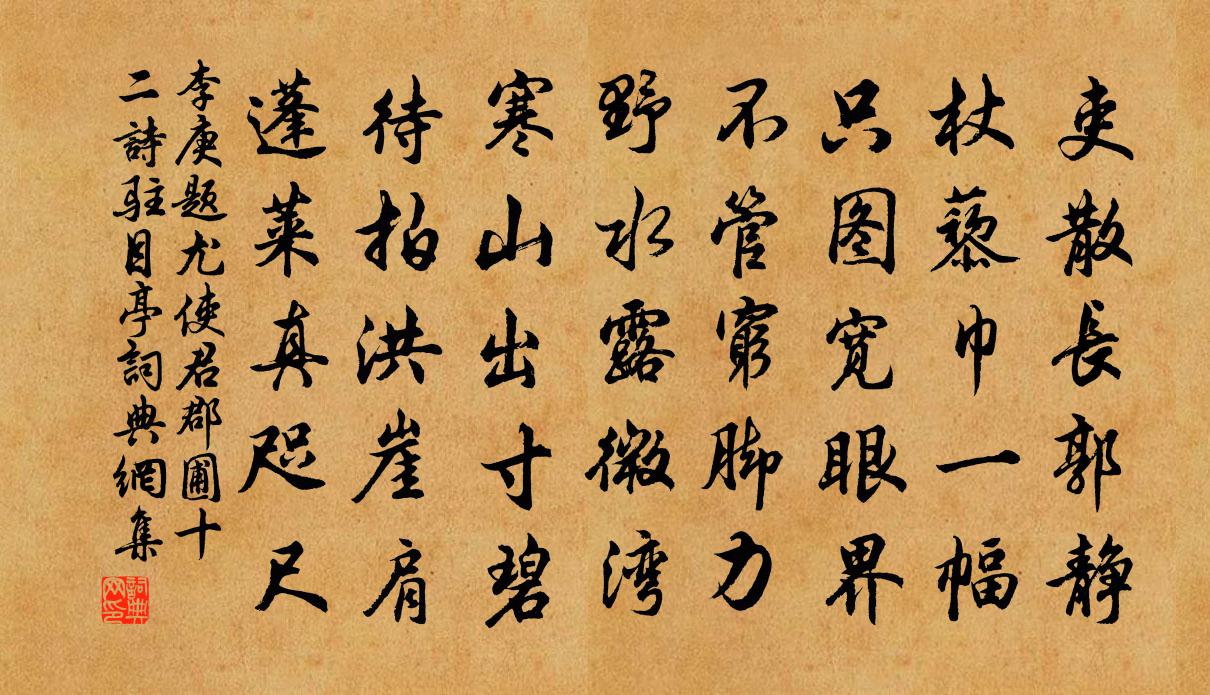 吏散長郭静
杖藜巾一幅
只图寛眼界
不管窮脚力
野水露微湾
寒山出寸碧
待拍洪崖肩
蓬莱真咫尺
李庚题尤使君郡圃十
二詩駐目亭詞典網集
詞典网印